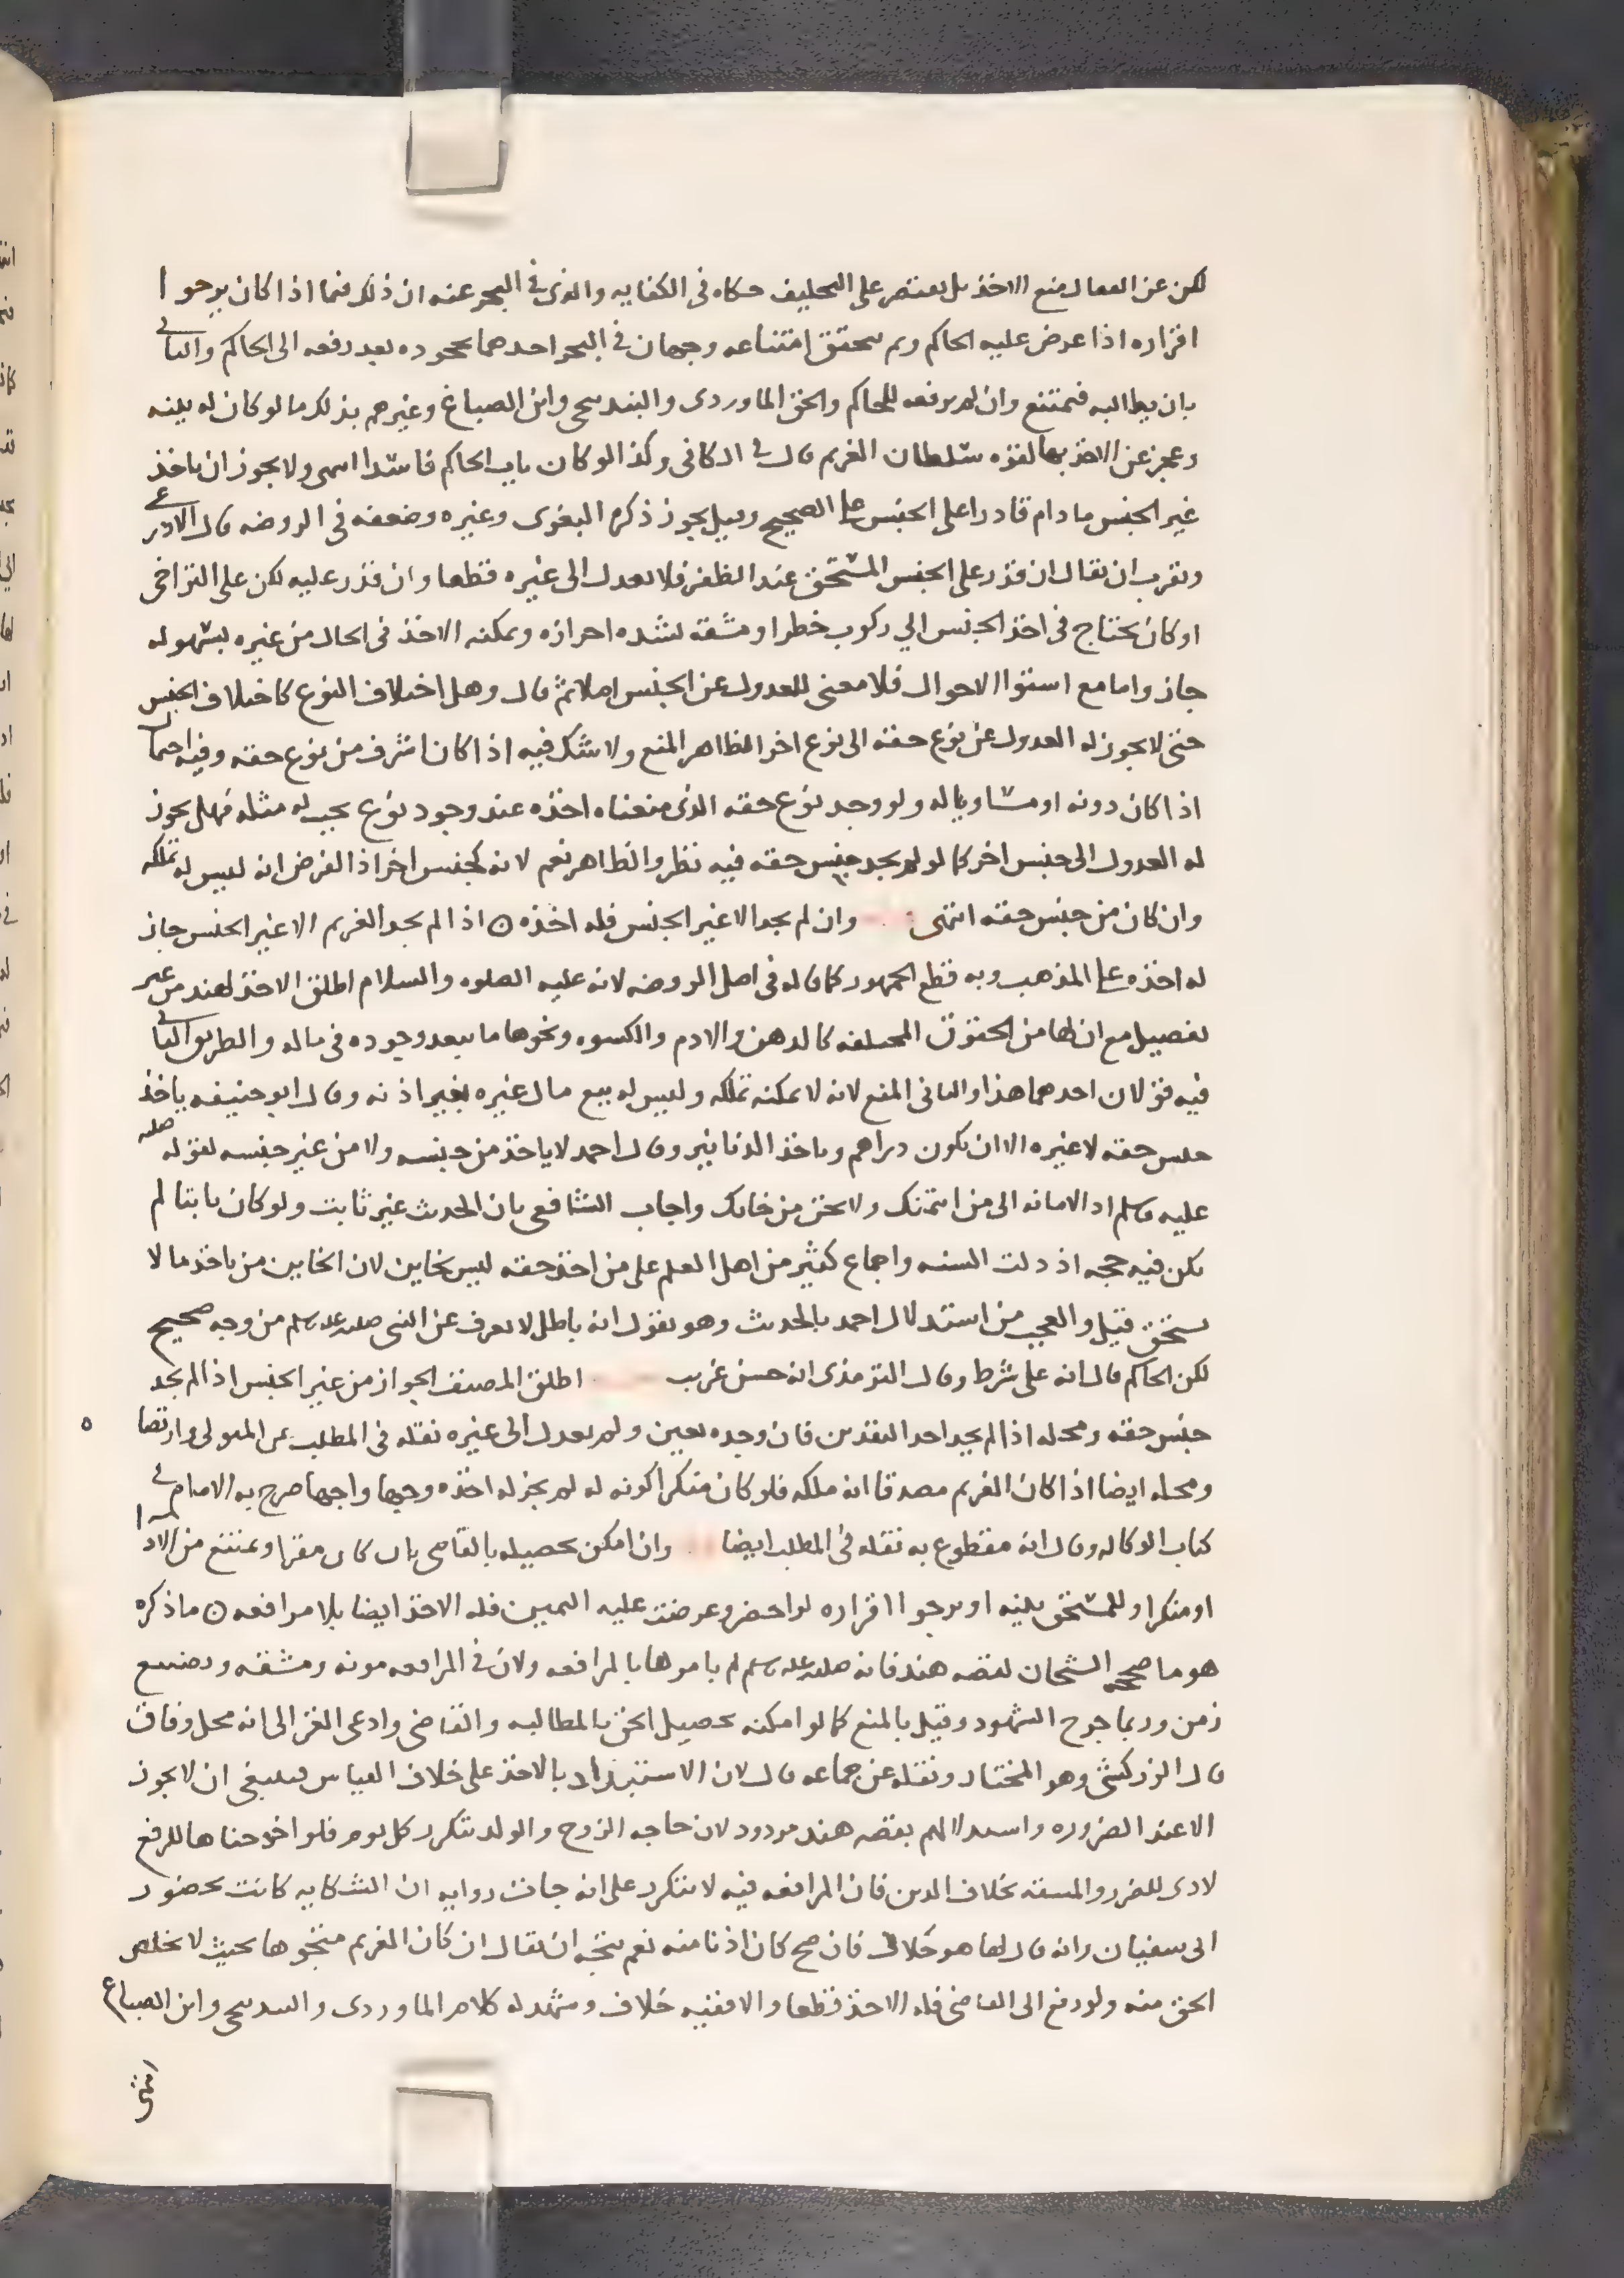 لكن عن القفال منع الاخذ بل يقتصر على التحليف حكاه في الكفايه والذي في البحر عنه ان ذلك فيما اذا كان يرجوا
اقراره اذا عرض عليه الحاكم وبم يتحقق امتناعه وجهان في البحر احدهما بجحوده بعد رفعه الى الحاكم والثاني
بان يطالبه فيمتنع وان لم يرفعه للحاكم والحق الماوردي والبندنيجي وابن الصباغ وغيرهم بذلك ما لو كان له بينه
وعجز عن الاخذ بها لقوه سلطان الغريم قال في الكافي وكذا لو كان باب الحاكم فاسدا انتهى ولا يجوز ان ياخذ
غير الجنس ما دام قادرا على الجنس على الصحيح وقيل يجوز ذكره البغوي وغيره وضعفه في الروضه قال الاذرعي
ويقرب ان يقال ان قدر على الجنس المستحق عند الظفر فلا يعدل الى غيره قطعا وان قدر عليه لكن على التراخي
او كان يحتاج في اخذ الجنس الي ركوب خطر او مشقه لشده احرازه ويمكنه الاخذ في الحال من غيره بسهوله
جاز واما مع استوا الاحوال فلا معنى للعدول عن الجنس اصلا ثم قال وهل اختلاف النوع كاختلاف الجنس
حتى لا يجوز له العدول عن نوع حقه الى نوع اخر الظاهر المنع ولا شك فيه اذا كان اشرف من نوع حقه وفيه احتمال
اذا كان دونه او مساويا له ولو وجد نوع حقه الذي منعناه اخذه عند وجود نوع يجب له مثله فهل يجوز
له العدول الى جنس اخر كما لو لم يجد جنس حقه فيه نظر والظاهر نعم لانه كجنس اخر اذ الفرض انه ليس له تملكه
وان كان من جنس حقه انتهى وان لم يجد الا غير الجنس فله اخذه ن اذا لم يجد الغريم الا غير الجنس جاز
له اخذه على المذهب وبه قطع الجمهور كما قاله في اصل الروضه لانه عليه الصلوه والسلام اطلق الاخذ لهند من غير
تفصيل مع ان لها من الحقوق المختلفه كالدهن والادم والكسوه ونحوها ما يبعد وجوده في ماله والطريق الثاني
فيه قولان احدهما هذا والثاني المنع لانه لا يمكنه تملكه وليس له بيع مال غيره بغير اذنه وقال ابو حنيفه ياخذ
جنس حقه لا غيره الا ان يكون دراهم وياخذ الدنانير وقال احمد لا ياخذ من جنسه ولا من غير جنسه لقوله صلى الله
عليه وسلم اد الامانه الى من ائتمنك ولا تخن من خانك واجاب الشافعي بان الحديث غير ثابت ولو كان ثابتا لم
يكن فيه حجه اذ دلت السنه واجماع كثير من اهل العلم على من اخذ حقه ليس بخاين لان الخاين من ياخذ ما لا
يستحق قيل والعجب من استدلال احمد بالحديث وهو يقول انه باطل لا يعرف عن النبي صلى الله عليه وسلم من وجه صحيح
لكن الحاكم قال انه على شرط وقال الترمذي انه حسن غريب اطلق المصنف الجواز من غير الجنس اذا لم يجد
جنس حقه ومحله اذا لم يجد احد النقدين فان وجده تعين ولم يعدل الى غيره نقله في المطلب عن المتولي وارتضا
ومحله ايضا اذا كان الغريم مصدقا انه ملكه فلو كان منكرا كونه له لم يجز له اخذه وجها واجها صرح به الامام في
كتاب الوكاله وقال انه مقطوع به نقله في المطلب ايضا وان امكن تحصيله بالقاضي بان كان مقرا ويمتنع من الادا
او منكرا وللمستحق بينه او يرجوا اقراره لو احضر وعرضت عليه اليمين فله الاخذ ايضا بلا مرافعه ن ما ذكره
هو ما صححه الشيخان لقصه هند فانه صلى الله عليه وسلم لم يامرها بالمرافعه ولان في المرافعه مونه ومشقه وتضييع
زمن وربما جرح الشهود وقيل بالمنع كما لو امكنه تحصيل الحق بالمطالبه والتقاضي وادعى الغزالي انه محل وفاق
قال الزركشي وهو المختار ونقله عن جماعه قال لان الاستبداد بالاخذ على خلاف القياس فينبغي ان لا يجوز
الا عند الضروره واستدلالهم بقصه هند مردود لان حاجه الزوج والولد تتكرر كل يوم فلو احوجناها للرفع
لادى للضرر والمشقه بخلاف الدين فان المرافعه فيه لا تتكرر على انه جات روايه ان الشكايه كانت بحضور
ابي سفيان وانه قال لها هو حلال فان صح كان اذنا منه نعم يتجه ان يقال ان كان الغريم متجوها بحيث لا يخلص
الحق منه ولو رفع الى القاضي فله الاخذ قطعا والا ففيه خلاف ويشهد له كلام الماوردي والبندنيجي وابن الصباغ
انتهى